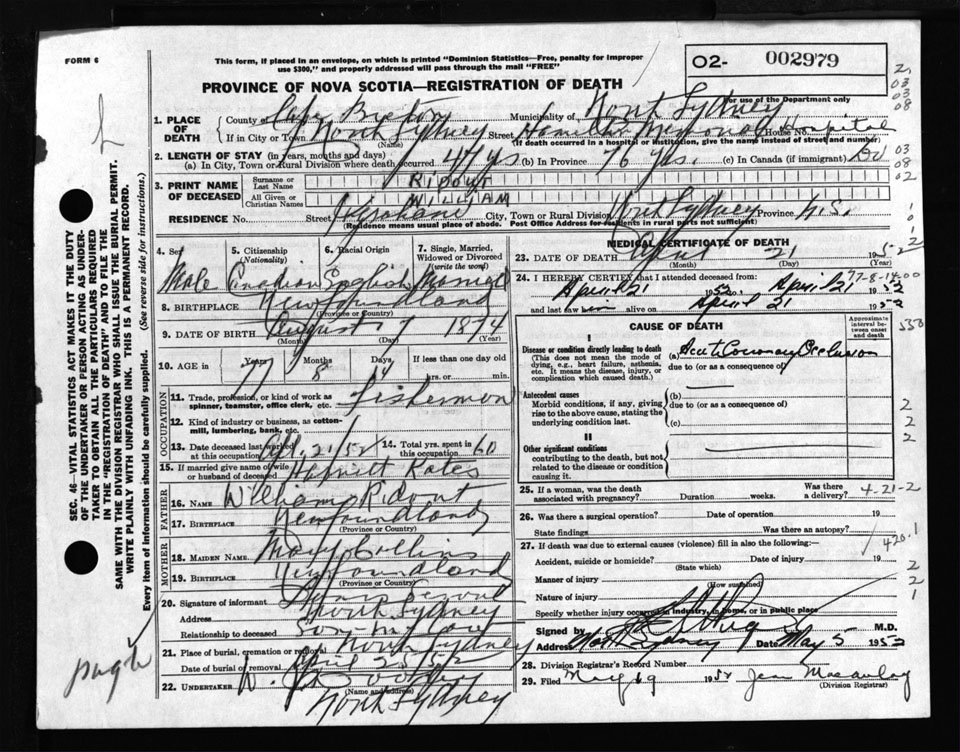 FORM 6
This form, if placed in an envelope, on which is printed "Dominion Statistics—Free, penalty for improper
use $300," and properly addressed will pass through the mail "FREE"
O2- 002979
PROVINCE OF NOVA SCOTIA—REGISTRATION OF DEATH
For use of the Department only
1. PLACE OF DEATH
County of Cape Breton Municipality of North Sydney
If in City or Town North Sydney Street Hamilton Memorial House No. Hospital
(Name) (If death occurred in a hospital or institution, give the name instead of street and number)
2. LENGTH OF STAY (in years, months and days)
(a) In City, Town or Rural Division where death occurred 47 ys (b) In Province 76 ys. (c) In Canada (if immigrant)
3. PRINT NAME OF DECEASED
Surname or Last Name RIDOUT
All Given or Christian Names WILLIAM
RESIDENCE No. Street City, Town or Rural Division North Sydney Province N.S.
(Residence means usual place of abode. Post Office Address for residents in rural parts not sufficient)
4. Sex 5. Citizenship (Nationality) 6. Racial Origin 7. Single, Married, Widowed or Divorced (write the word)
Male Canadian English Married
8. BIRTHPLACE Newfoundland
(Province or Country)
9. DATE OF BIRTH August 7 1874
(Month) (Day) (Year)
10. AGE in Years Months Days If less than one day
77 8 14 hrs. or min.
OCCUPATION
11. Trade, profession, or kind of work as spinner, teamster, office clerk, etc. Fisherman
12. Kind of industry or business, as cotton-mill, lumbering, bank, etc.
13. Date deceased last worked at this occupation Apl. 21/52 14. Total yrs. spent in this occupation 60
15. If married give name of wife or husband of deceased Harriett Kates
FATHER
16. NAME William Ridout
17. BIRTHPLACE Newfoundland
(Province or Country)
MOTHER
18. MAIDEN NAME Mary Collins
19. BIRTHPLACE Newfoundland
(Province or Country)
20. Signature of informant
Address North Sydney
Relationship to deceased Son-in-law
21. Place of burial, cremation or removal North Sydney
Date of burial or removal April 23/52
22. UNDERTAKER W.
(Name and address)
North Sydney
MEDICAL CERTIFICATE OF DEATH
23. DATE OF DEATH April 21
(Month) (Day) (Year)
24. I HEREBY CERTIFY that I attended deceased from:
April 21 1952 to April 21 1952
and last saw him alive on April 21 1952
CAUSE OF DEATH
Approximate interval between onset and death
I
Disease or condition directly leading to death
(This does not mean the mode of dying, e.g., heart failure, asthenia, etc. It means the disease, injury, or complication which caused death.)
(a) Acute Coronary Occlusion
due to (or as a consequence of)
Antecedent causes
Morbid conditions, if any, giving rise to the above cause, stating the underlying condition last.
(b)
due to (or as a consequence of)
(c)
II
Other significant conditions
contributing to the death, but not related to the disease or condition causing it.
25. If a woman, was the death associated with pregnancy? Duration weeks. Was there a delivery?
4-21-2
26. Was there a surgical operation? Date of operation 19
State findings Was there an autopsy?
27. If death was due to external causes (violence) fill in also the following:—
Accident, suicide or homicide? Date of injury 19
(State which)
Manner of injury
(How sustained)
Nature of injury
Specify whether injury occurred in industry, in home, or in public place
Signed by M.D.
Address North Sydney Date May 5 1952
28. Division Registrar's Record Number
29. Filed May 19 1952 Jean Macaulay
(Division Registrar)
SEC. 46—VITAL STATISTICS ACT MAKES IT THE DUTY
OF THE UNDERTAKER OR PERSON ACTING AS UNDER-
TAKER TO OBTAIN ALL THE PARTICULARS REQUIRED
IN THE "REGISTRATION OF DEATH" AND TO FILE THE
SAME WITH THE DIVISION REGISTRAR WHO SHALL ISSUE THE BURIAL PERMIT.
WRITE PLAINLY WITH UNFADING INK. THIS IS A PERMANENT RECORD.
Every item of information should be carefully supplied. (See reverse side for instructions.)